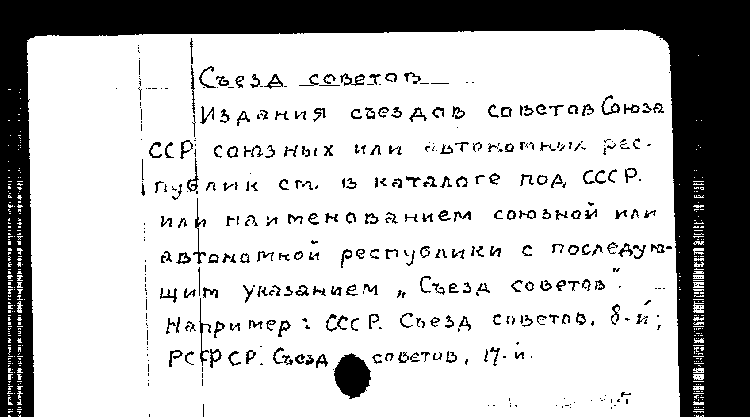 Съезд советов
Издания съездов советов Союза
ССР союзных или автономных рес-
публик см. в каталоге под СССР.
или наименованием союзной или
автономной республики с последую-
щим указанием „Съезд советов".
Например: СССР. Съезд советов, 8-й;
РСФСР. Съезд советов, 17-й.